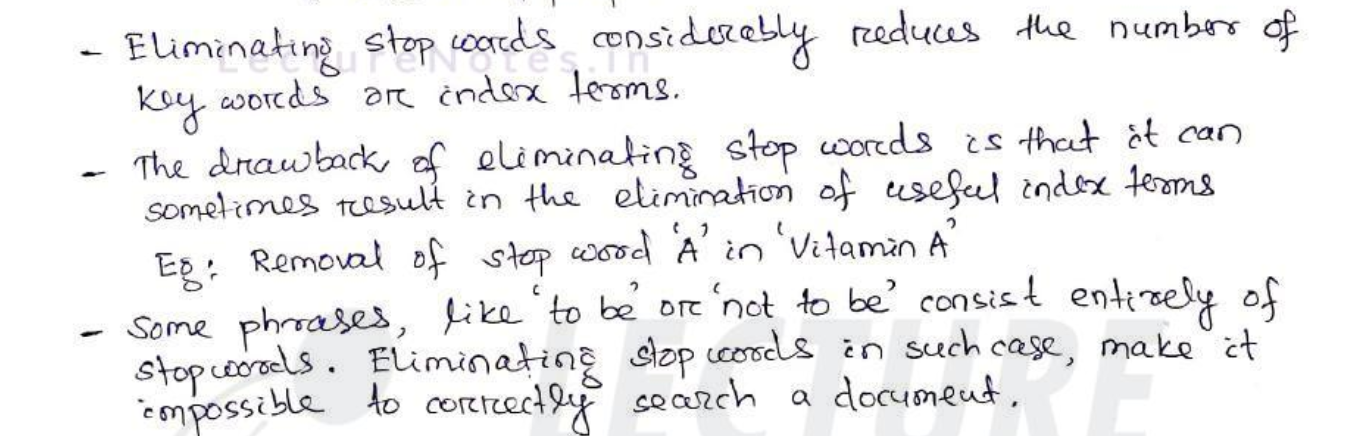 - Eliminating stop words considerably reduces the number of
LectureNotes.in
key words or index terms.
- The drawback of eliminating stop words is that it can
sometimes result in the elimination of useful index terms
Eg: Removal of stop word 'A' in 'Vitamin A'
- Some phrases, like 'to be' or 'not to be' consist entirely of
stopwords. Eliminating stop words in such case, make it
impossible to correctly search a document.
LECTURE